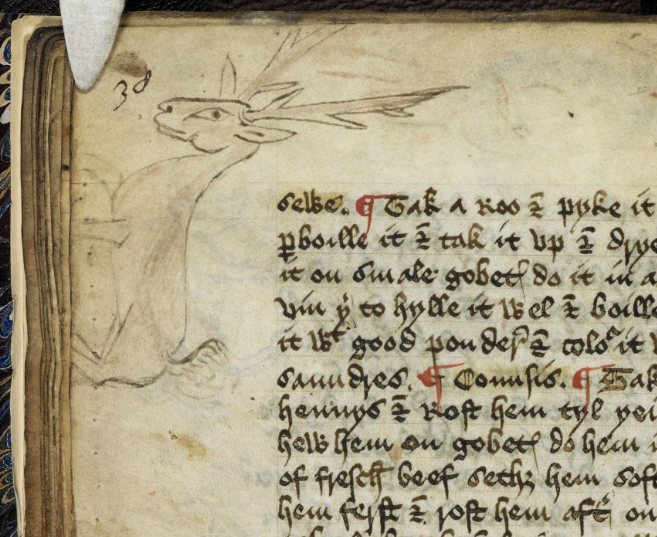 38
sewe. ¶ Tak a Roo & pyke it
ꝑboille it & tak it vp & drye
it on smale gobetꝭ do it in a
vin yͭ to hylle it wel & boille
it wͭ good poudeɼ & coloͬ it w
saundres. ¶ Conuſis. ¶ Tak
hennys & Roſt hem tyl yei
hew hem on gobetꝭ do hem i
of freſch beef sethȝ hem soft
hem ferſt & roſt hem aftͬ on